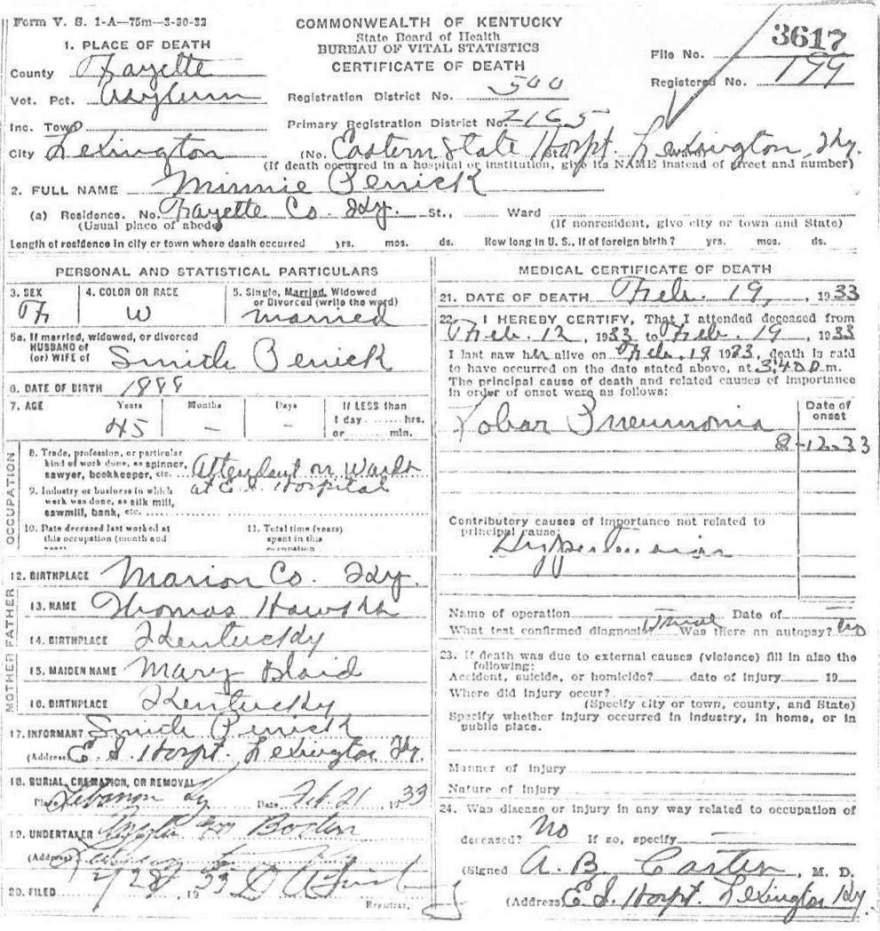 Form V. S. 1-A—75m—3-20-32
COMMONWEALTH OF KENTUCKY
State Board of Health
BUREAU OF VITAL STATISTICS
CERTIFICATE OF DEATH
File No. 3617
Registered No. 199
1. PLACE OF DEATH
County Fayette
Vot. Pct. Asylum
Registration District No. 500
Inc. Town
Primary Registration District No. 2165
City Lexington (No. Eastern State Hospt. Lexington, Ky.
(If death occurred in a hospital or institution, give its NAME instead of street and number)
2. FULL NAME Minnie Penick
(a) Residence. No. Fayette Co. Ky. St., Ward
(Usual place of abode) (If nonresident, give city or town and State)
Length of residence in city or town where death occurred yrs. mos. ds. How long in U. S., if of foreign birth? yrs. mos. ds.
PERSONAL AND STATISTICAL PARTICULARS
3. SEX 4. COLOR OR RACE 5. Single, Married, Widowed or Divorced (write the word)
F W married
5a. If married, widowed, or divorced
HUSBAND of
(or) WIFE of Smith Penick
6. DATE OF BIRTH 1888
7. AGE Years Months Days If LESS than 1 day hrs. or min.
45 – –
OCCUPATION
8. Trade, profession, or particular kind of work done, as spinner, sawyer, bookkeeper, etc. Attendant on Wards
9. Industry or business in which work was done, as silk mill, sawmill, bank, etc. at E. S. Hospital
10. Date deceased last worked at this occupation (month and year)
11. Total time (years) spent in this occupation
12. BIRTHPLACE Marion Co. Ky.
FATHER
13. NAME Thomas
14. BIRTHPLACE Kentucky
MOTHER
15. MAIDEN NAME Mary
16. BIRTHPLACE Kentucky
17. INFORMANT Smith Penick
(Address) E. S. Hospt. Lexington Ky.
18. BURIAL, CREMATION, OR REMOVAL
Place Lebanon Ky Date Feb 21, 1933
19. UNDERTAKER
(Address)
20. FILED 2/28, 1933
Registrar.
MEDICAL CERTIFICATE OF DEATH
21. DATE OF DEATH Feb. 19, 1933
22. I HEREBY CERTIFY, That I attended deceased from
Feb. 12, 1933 to Feb. 19, 1933
I last saw her alive on Feb. 19 1933, death is said
to have occurred on the date stated above, at 3:40 P. m.
The principal cause of death and related causes of importance
in order of onset were as follows:
Date of onset
Lobar Pneumonia
2-12-33
Contributory causes of importance not related to
principal cause:
Hypertension
Name of operation Date of –
What test confirmed diagnosis? Was there an autopsy? no
23. If death was due to external causes (violence) fill in also the
following:
Accident, suicide, or homicide? date of injury 19
Where did injury occur?
(Specify city or town, county, and State)
Specify whether injury occurred in industry, in home, or in
public place.
Manner of injury
Nature of injury
24. Was disease or injury in any way related to occupation of
deceased? No If so, specify –
(Signed A. B. Carter, M. D.
(Address) E. S. Hospt. Lexington Ky.